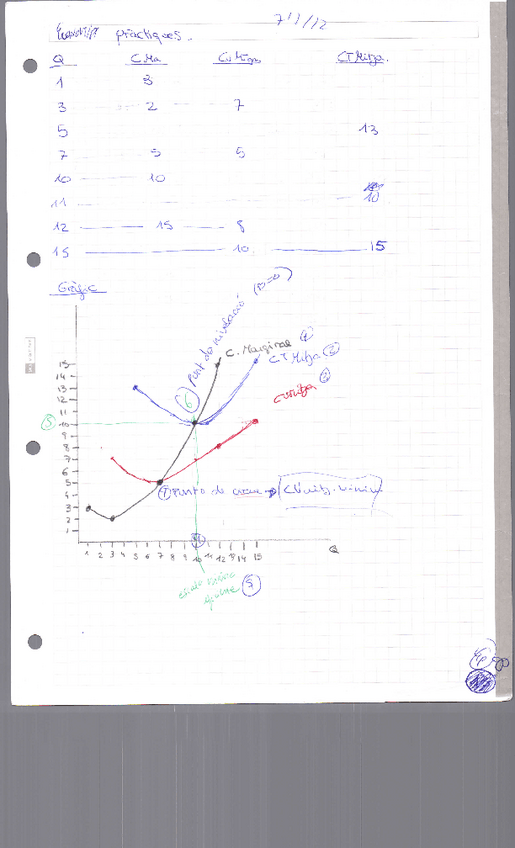 7/11/12
Economia pràctiques.
Q C.Ma CV Mitja CT Mitja.
1 3
3 2 7
5 13
7 5 5
10 10
11 10
12 15 8
15 10 15
Gràfic
Punt de nivelació (B=0)
C. Marginal 1
CT Mitja 3
CV Mitja 2
6
15
14
13
12
11
10
9
8
7
6
5
4
3
2
1
7 Punto de cierre → C Variable. mínim
1 2 3 4 5 6 7 8 9 10 11 12 13 14 15 Q
5